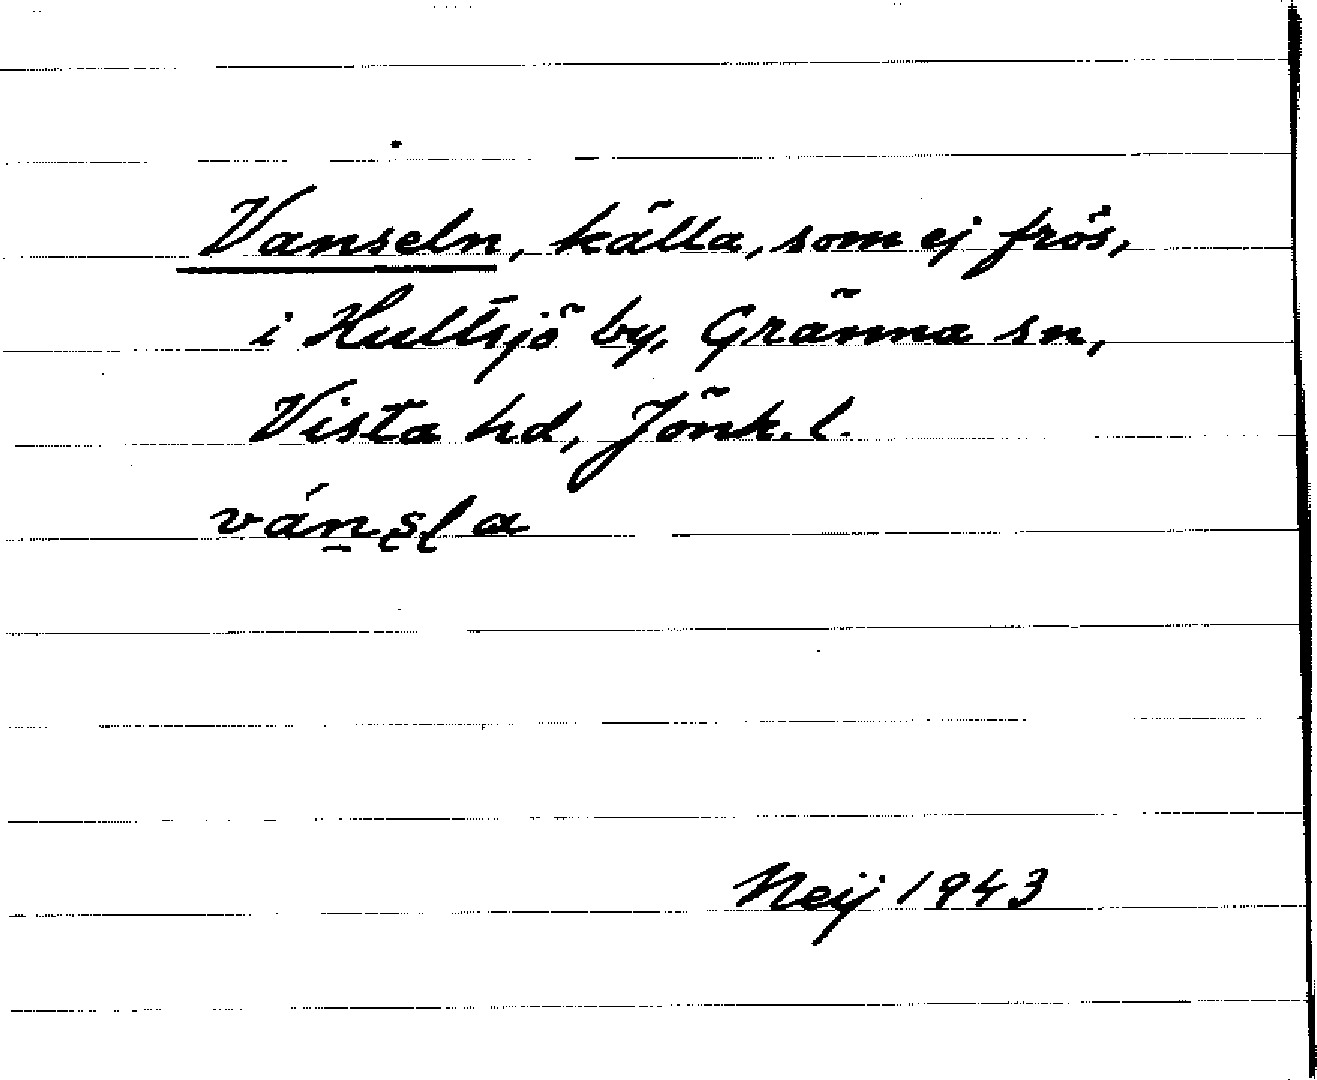 Vanseln, källa, som ej frös,
i Hultsjö by, Gränna sn,
Vista hd, Jönk. l.
vánsla
Neij 1943